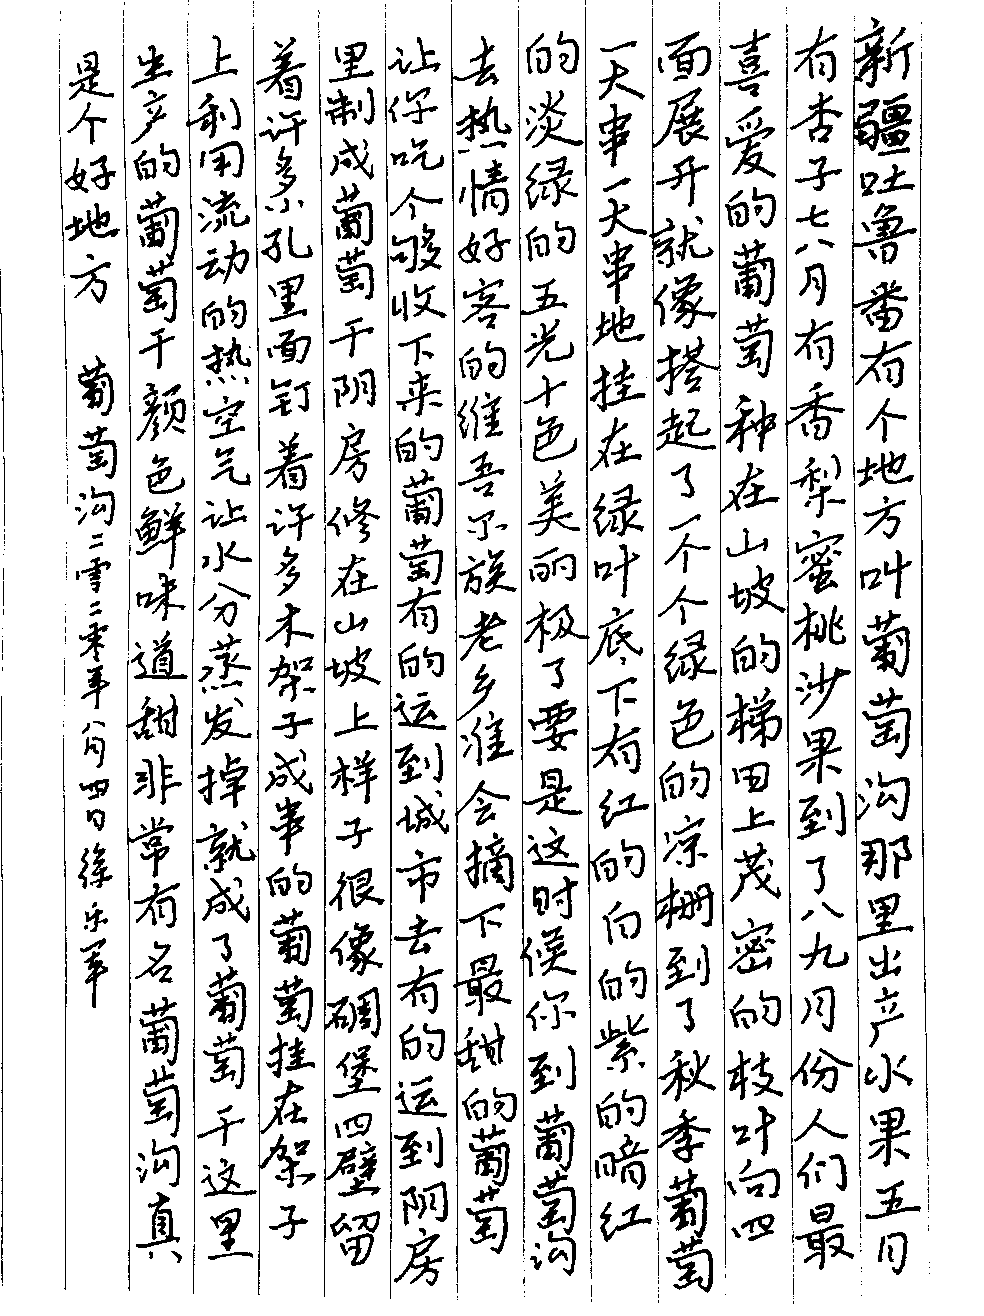 新疆吐鲁番有个地方叫葡萄沟那里出产水果五月
有杏子七八月有香梨蜜桃沙果到了八九月份人们最
喜爱的葡萄种在山坡的梯田上茂密的枝叶向四
面展开就像搭起了一个个绿色的凉棚到了秋季葡萄
一大串一大串地挂在绿叶底下有红的白的紫的暗红
的淡绿的五光十色美丽极了要是这时候你到葡萄沟
去热情好客的维吾尔族老乡准会摘下最甜的葡萄
让你吃个够收下来的葡萄有的运到城市去有的运到阴房
里制成葡萄干阴房修在山坡上样子很像碉堡四壁留
着许多小孔里面钉着许多木架子成串的葡萄挂在架子
上利用流动的热空气让水分蒸发掉就成了葡萄干这里
生产的葡萄干颜色鲜味道甜非常有名葡萄沟真
是个好地方 葡萄沟二零二零年八月四日徐乐军